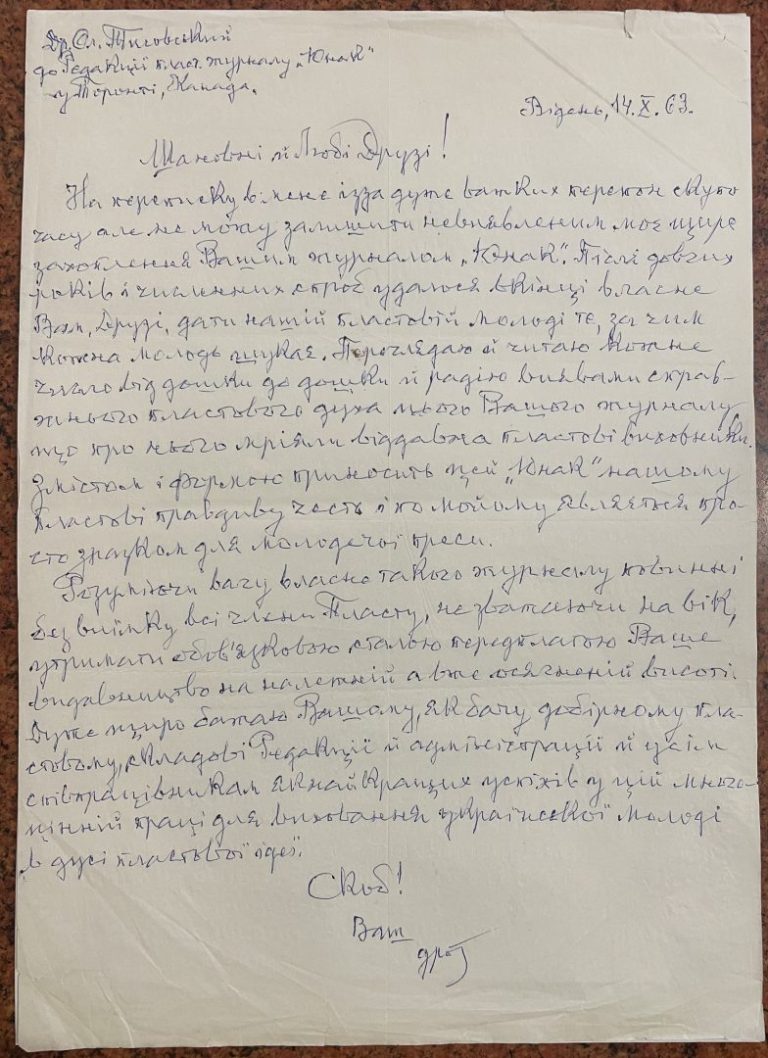 Др. Ол. Тисовський
до Редакції пласт. журналу „Юнак"
у Торонті, Канада.
Відень, 14. X. 63.
Шановні й Любі Друзі!
На переписку в мене ізза дуже важких перепон скупо
часу але не можу залишити невиявленим моє щире
захоплення Вашим журналом „Юнак". Після довгих
років і численних спроб удалося вкінці власне
Вам, Друзі, дати нашій пластовій молоді те, за чим
кожна молодь шукає. Переглядаю й читаю кожне
число від дошки до дошки й радію виявами справ-
жнього пластового духа цього Вашого журналу
що про нього мріяли віддавна пластові виховники.
Змістом і формою приносить цей „Юнак" нашому
Пластові правдиву честь і по мойому являється про-
сто зразком для молодечої преси.
Розуміючи вагу власне такого журналу повинні
без виїмку всі члени Пласту, не зважаючи на вік,
утримати обов'язковою сталою передплатою Ваше
видавництво на належній а вже осягненій висоті.
Дуже щиро бажаю Вашому, як бачу добірному пла-
стовому, складові Редакції й адміністрації й усім
співпрацівникам якнайкращих успіхів у цій много-
цінній праці для виховання української молоді
в дусі пластової ідеї.
Скоб!
Ваш
дрот